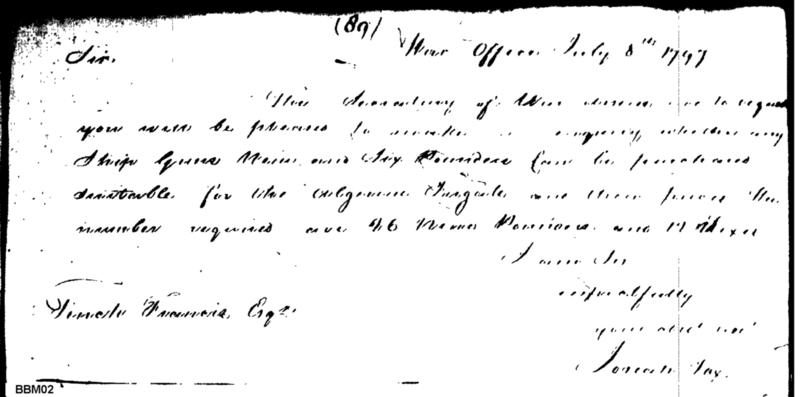 (89)
War Office July 8th 1797
Sir.
The Secretary of War desires me to request
you will be pleased to make enquiry whether any
Ship Guns Nine and Six Pounders Can be purchased
suitable for the Algerine Frigate and their prices the
number required are 26 Nines Pounders and
I am Sir
respectfully
your obdt
Francis, Esqr.
BBM02